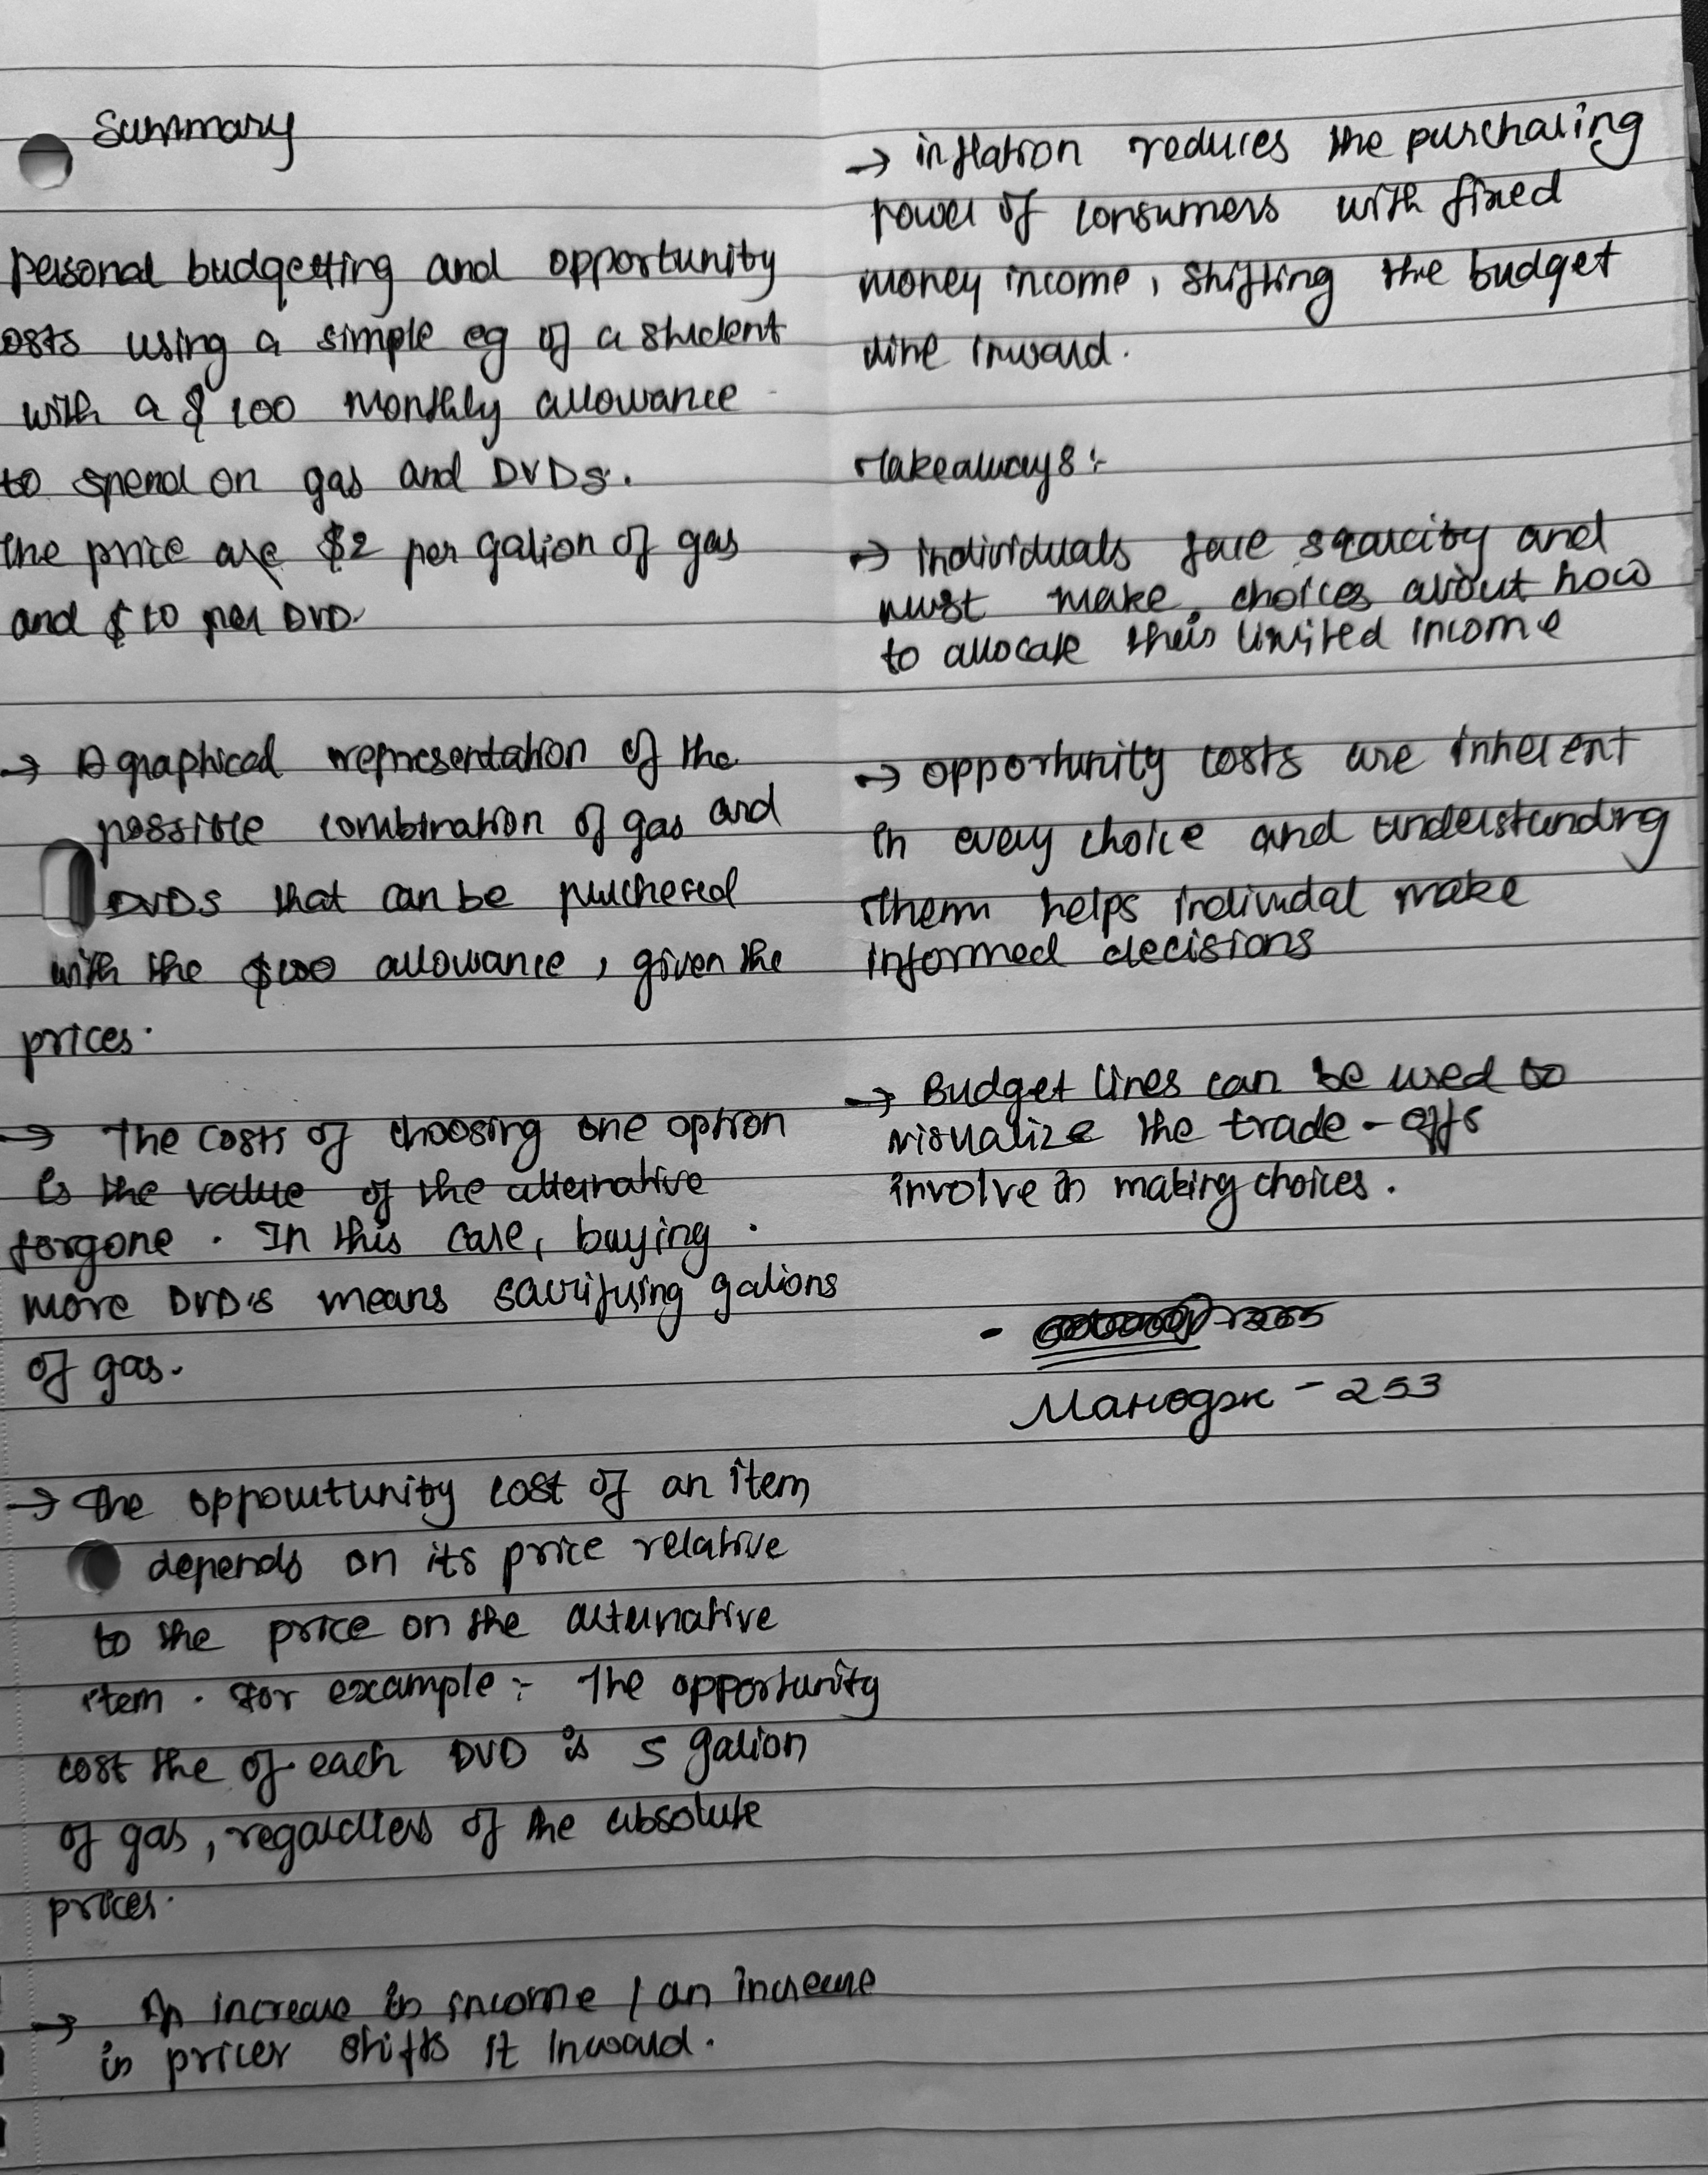 Summary
Personal budgetting and opportunity
osts using a simple eg of a student
with a $100 monthly allowance
to spend on gas and DVDs.
The price are $2 per gallon of gas
and $10 per DVD.
→ A graphical representation of the
possible combination of gas and
DVDs that can be purchesed
with the $100 allowance, given the
prices.
→ The costs of choosing one option
is the value of the alternative
forgone. In this case, buying
more DVD's means sacrifusing gallons
of gas.
→ The oppowtunity cost of an item
depends on its price relative
to the price on the alternative
item. For example :- The opportunity
cost the of each DVD is 5 gallon
of gas, regardless of the absolute
prices.
→ An increase in income / an increase
in prices shifts it inward.
→ inflation reduces the purchasing
power of consumers with fixed
money income, shifting the budget
line inward.
Takeaways :-
→ individuals face scarcity and
must make choices about how
to allocate their limited income
→ opportunity costs are inherent
in every choice and understanding
them helps indivudal make
informed decisions
→ Budget lines can be used to
visualize the trade-offs
involve in making choices.
Манодж - 253